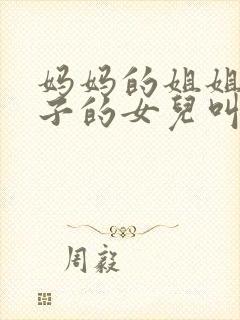 妈妈的姐姐
子的女兒叫
周毅